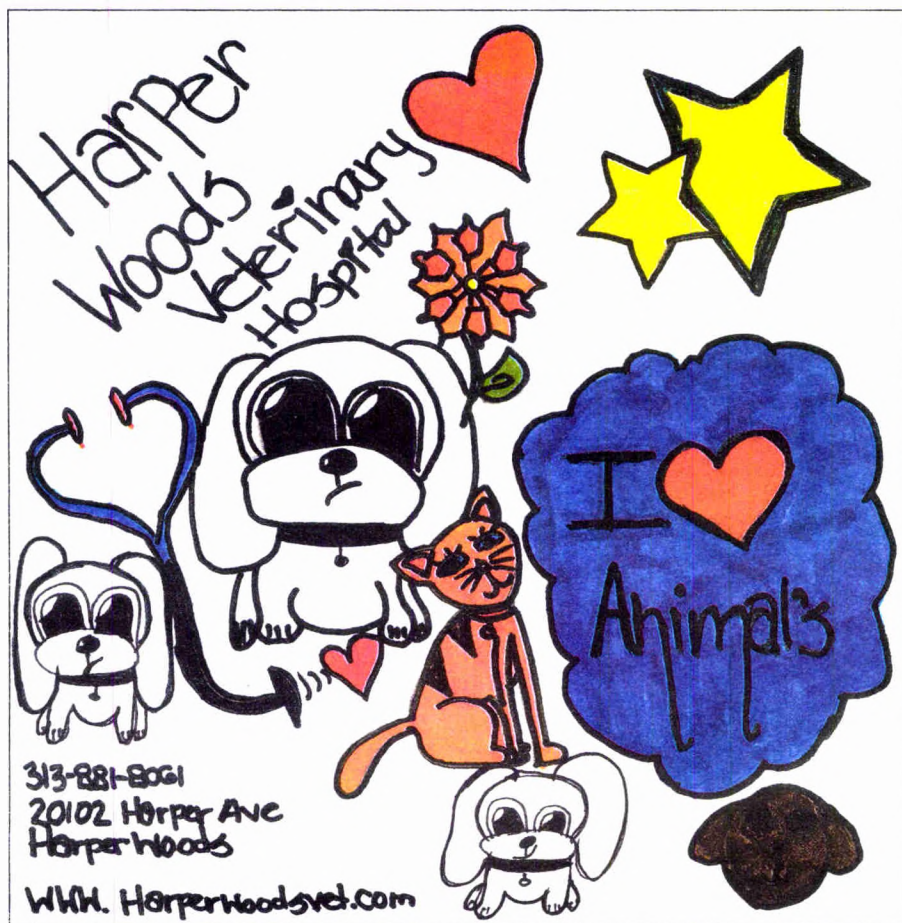 Harper
Woods
Veterinary
Hospital
I
Animals
313-881-8061
20102 Harper Ave
Harper Woods
WWW. Harperwoodsvet.com